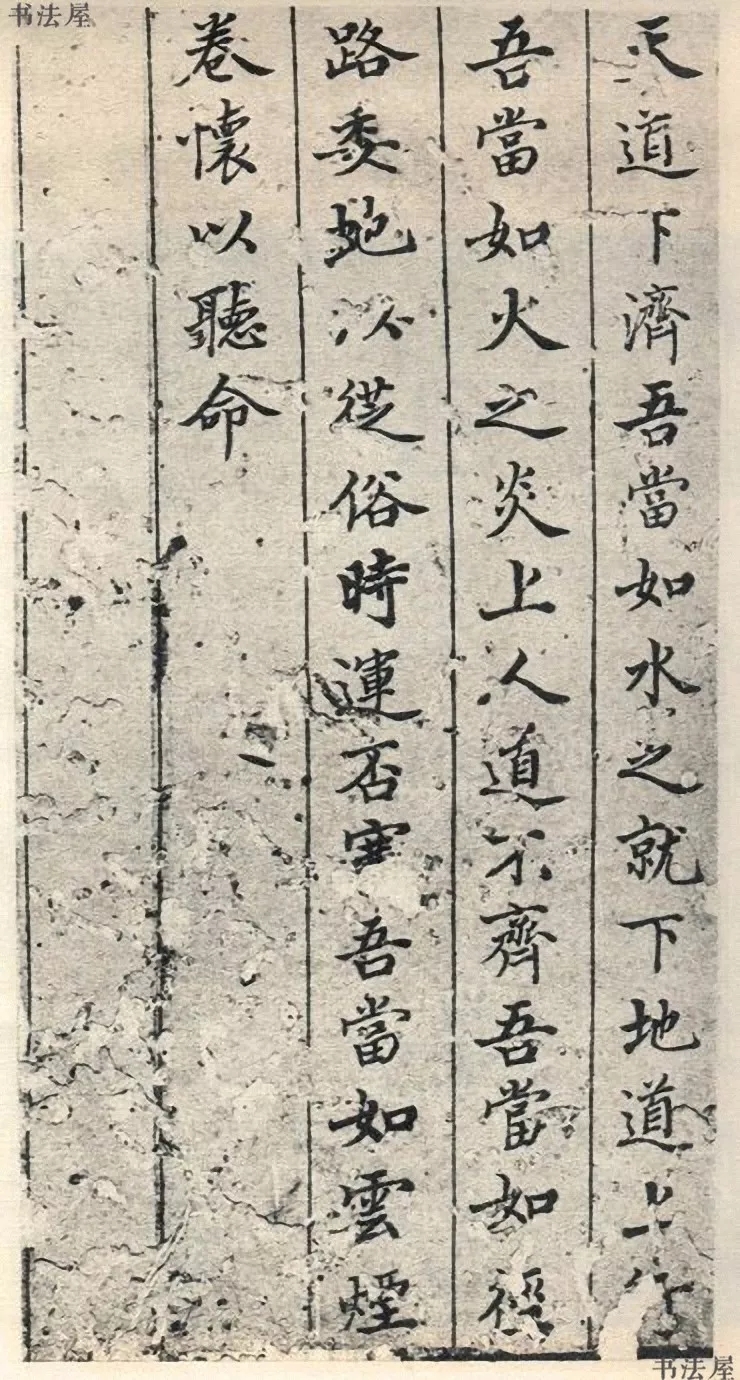 书法屋
天道下濟吾當如水之就下地道上行
吾當如火之炎上人道不齊吾當如徑
路委虵以從俗時運否塞吾當如雲煙
卷懷以聽命
书法屋